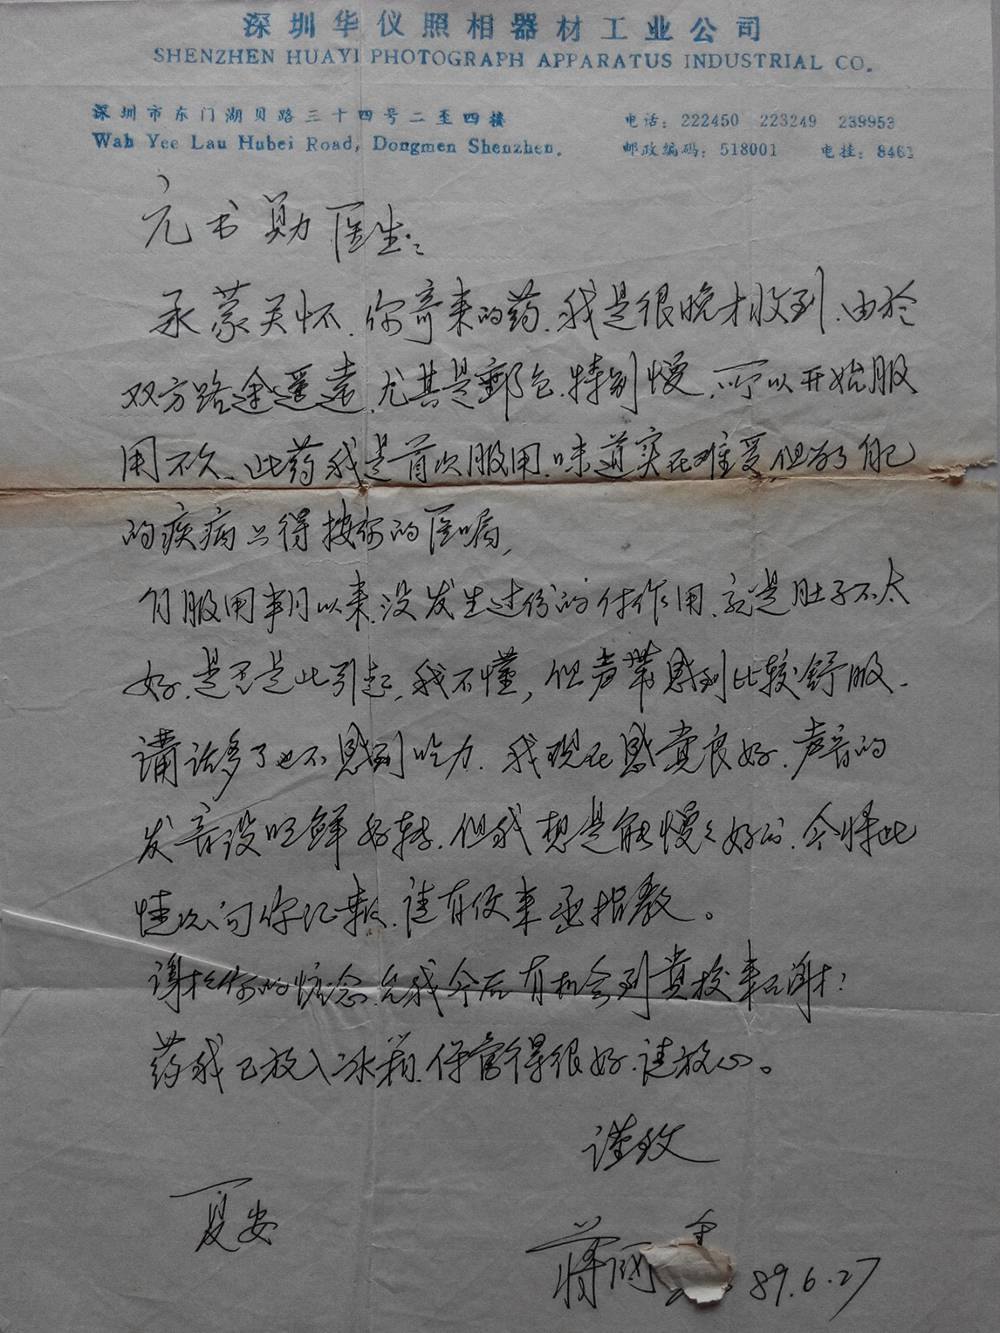 深圳华仪照相器材工业公司
SHENZHEN HUAYI PHOTOGRAPH APPARATUS INDUSTRIAL CO.
深圳市东门湖贝路三十四号二至四楼
电话：222450 223249 239953
Wah Yee Lau Hubei Road, Dongmen Shenzhen.
邮政编码：518001 电挂：8461
亢书勛医生：
承蒙关怀.你寄来的药.我是很晚才收到.由於
双方路途遥远.尤其是郵包.特别慢.所以开始服
用不久.此药我是首次服用.味道实在难受.但为了自己
的疾病只得按你的医嘱,
自服用半月以来.没发生过份的付作用.就是肚子不太
好.是否是此引起,我不懂,但声带感到比较舒服.
講话多了也不感到吃力.我现在感觉良好.声音的
发音没明鲜好转.但我想是能慢々好的.今将此
情况向你汇報.请有便来函指教。
谢々你的惦念.允我今后有机会到貴校来面谢！
药我已放入冰箱.保管得很好.请放心。
谨致
夏安
蒋 89.6.27